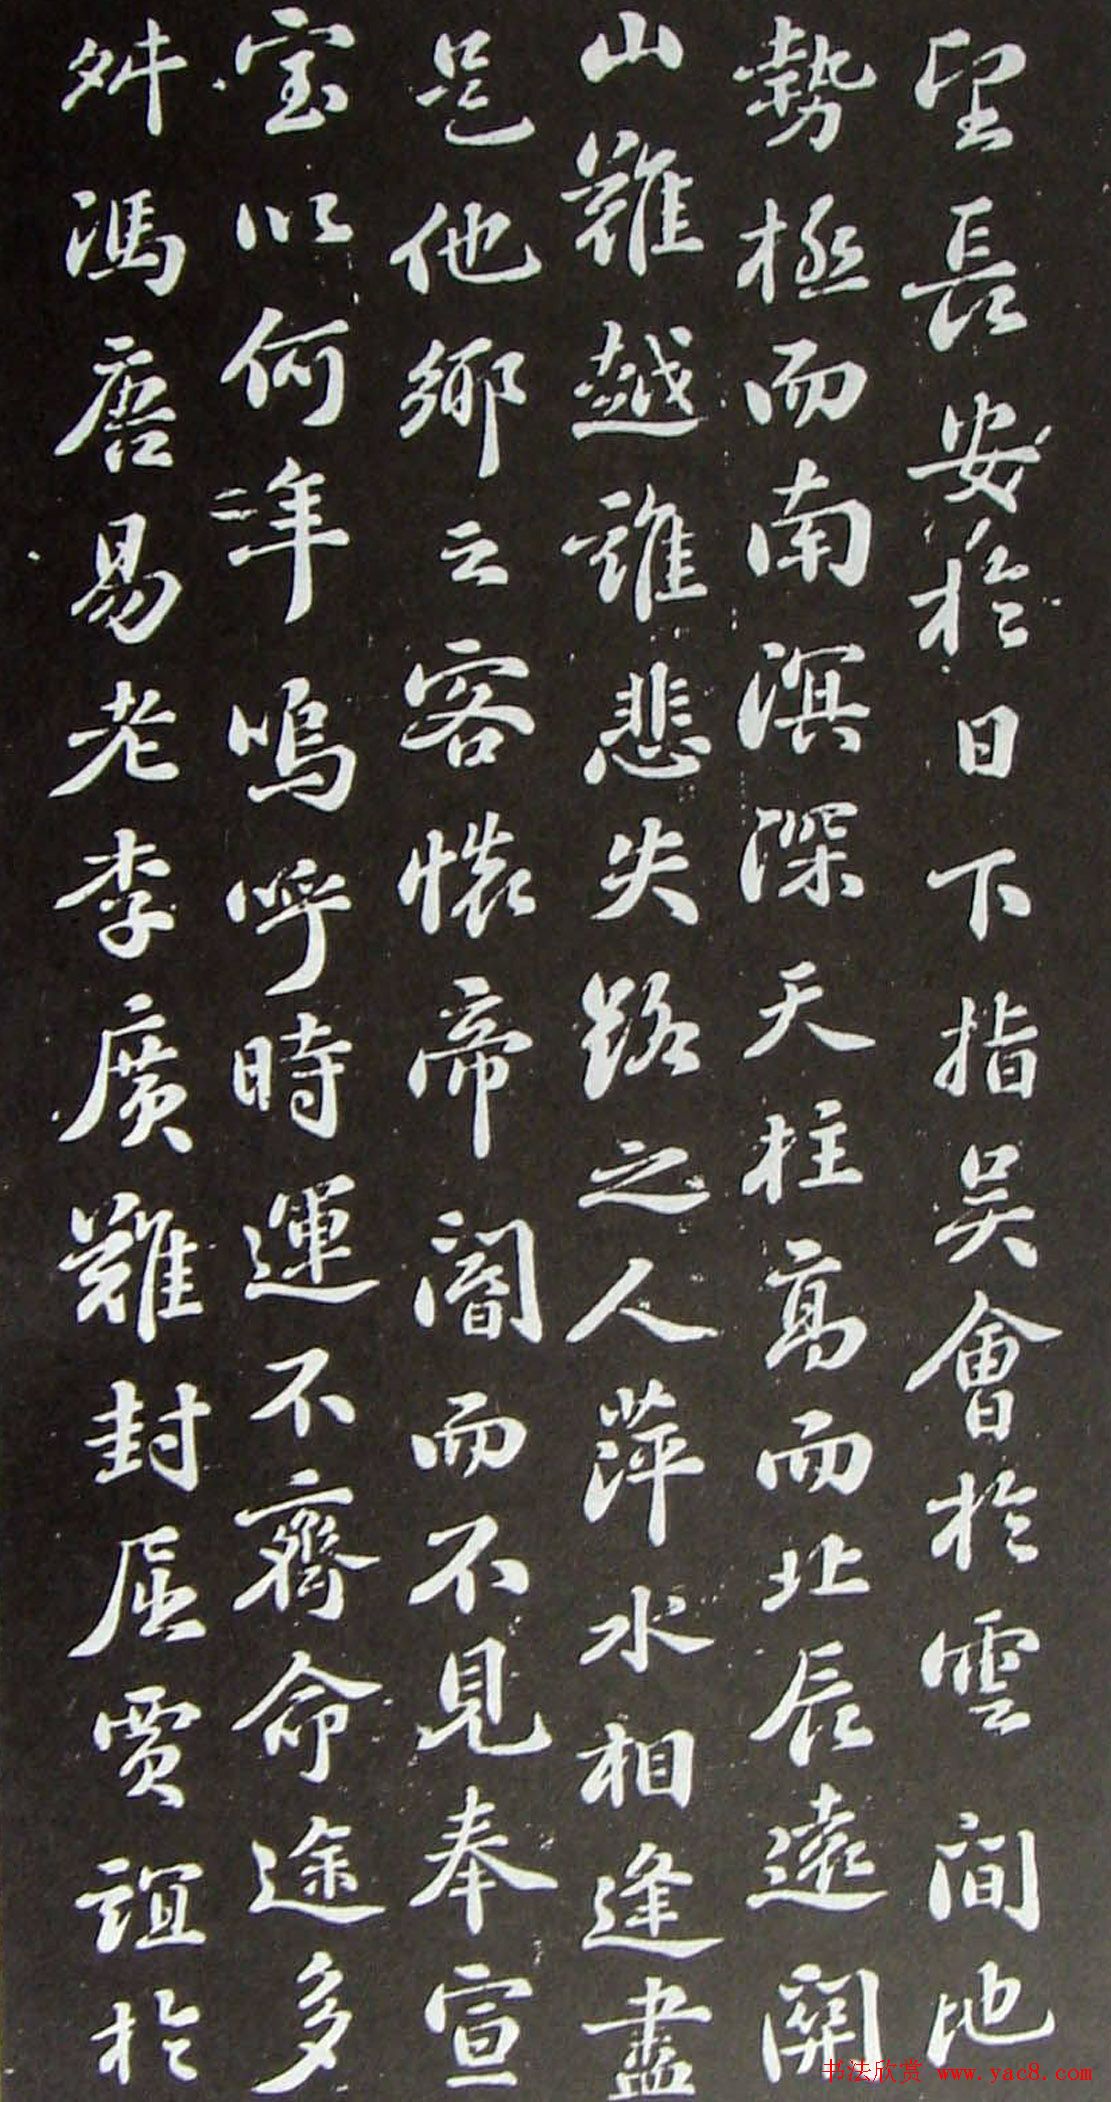 望長安於日下指吳會於雲間地
勢極而南溟深天柱高而北辰遠關
山難越誰悲失路之人萍水相逢盡
是他鄉之客懷帝閽而不見奉宣
室以何年嗚呼時運不齊命途多
舛馮唐易老李廣難封屈賈誼於
书法欣赏 www.yac8.com